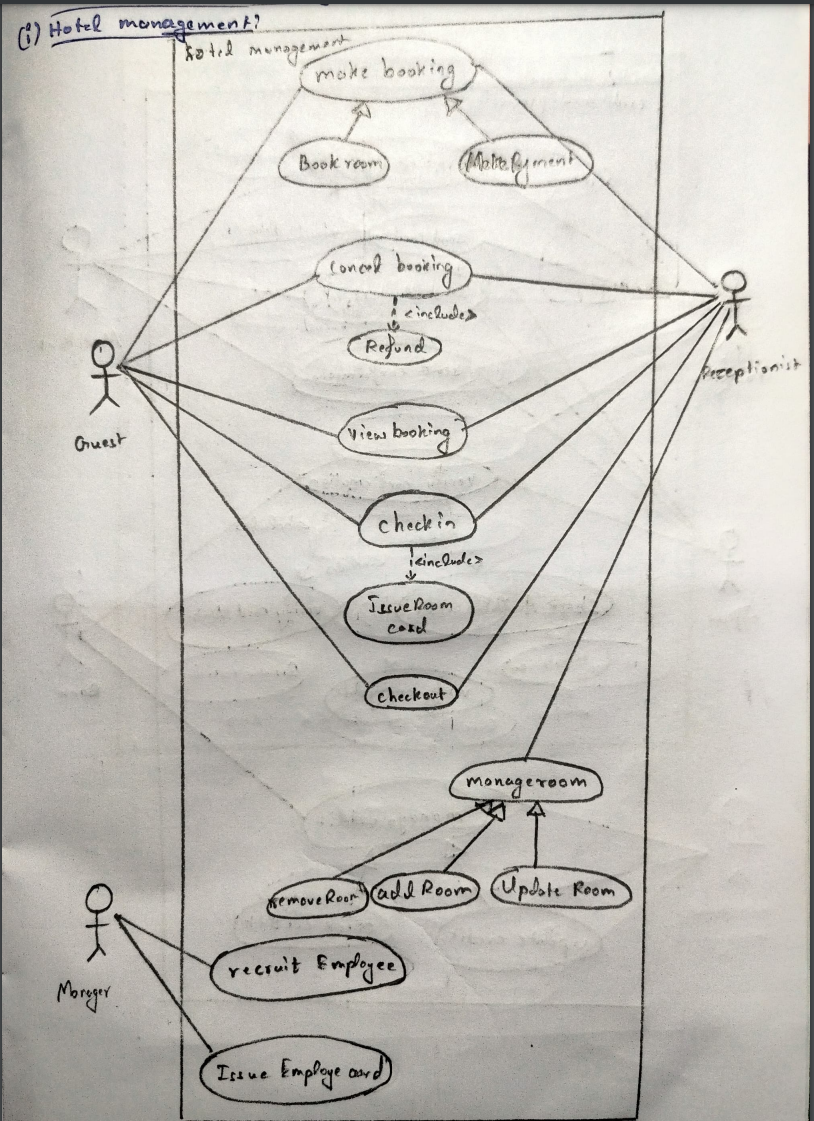 (i) Hotel management:
Hotel management
make booking
Book room
Make Pyment
Cancel booking
<include>
Refund
Receptionist
Guest
View booking
Check in
<include>
Issue Room
card
checkout
manage room
remove Room
add Room
Update Room
recruit Employee
Manager
Issue Employe card